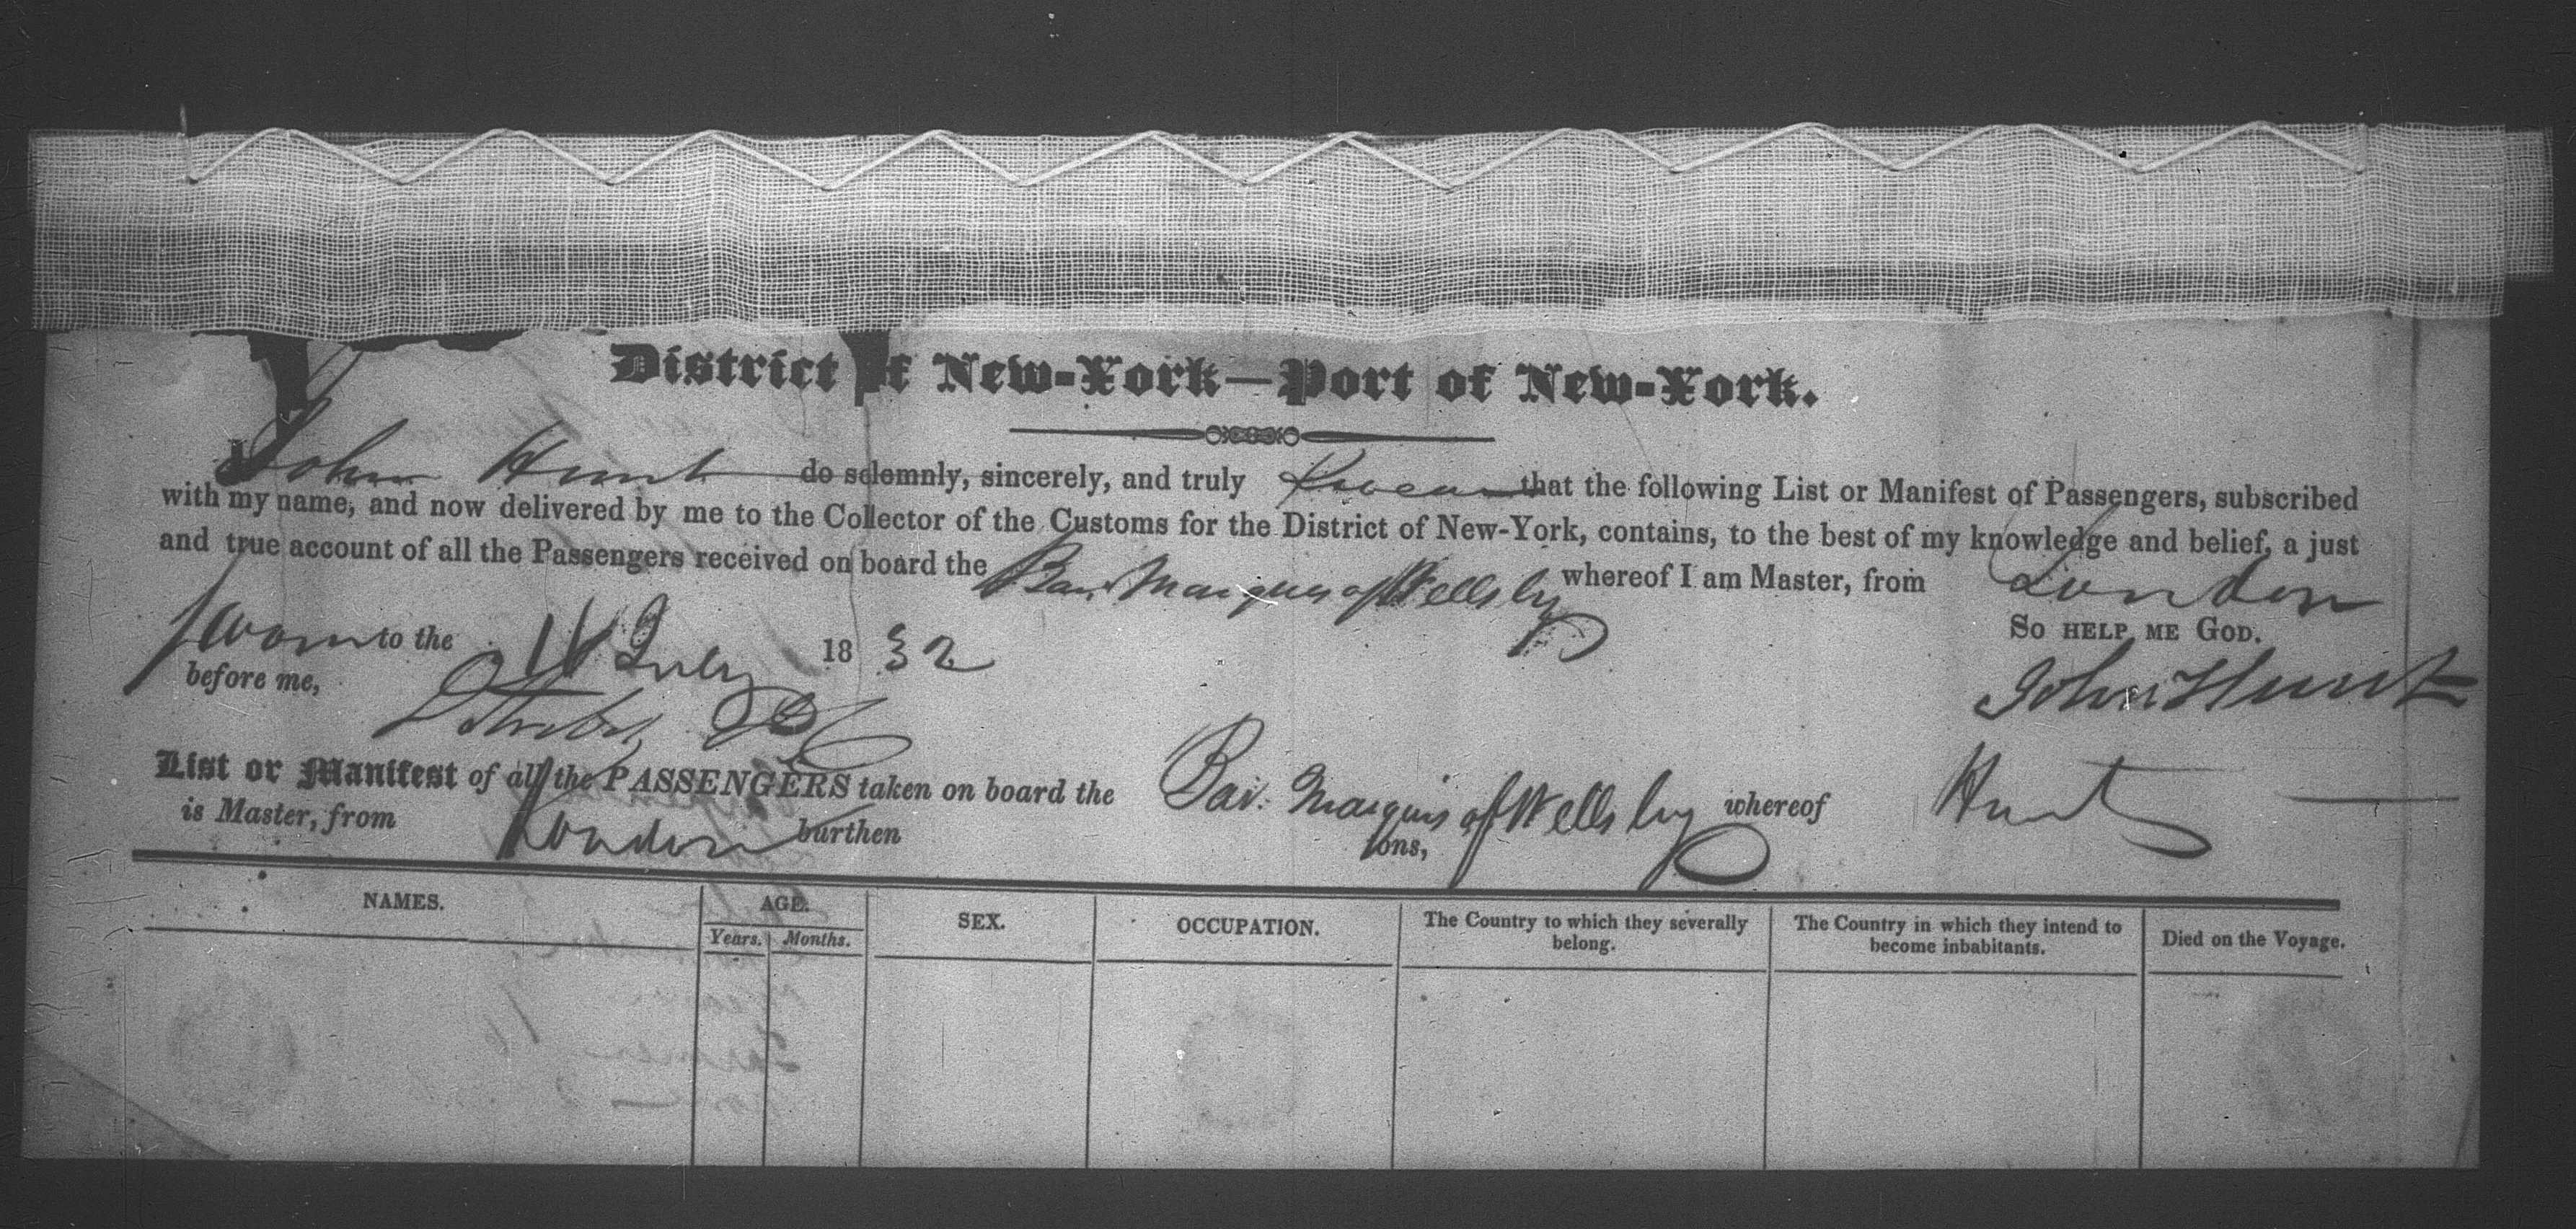 District of New-York—Port of New-York.
I John Hunt do solemnly, sincerely, and truly Swear that the following List or Manifest of Passengers, subscribed
with my name, and now delivered by me to the Collector of the Customs for the District of New-York, contains, to the best of my knowledge and belief, a just
and true account of all the Passengers received on board the Bar. Marquis of Wellsby whereof I am Master, from London
So help me God.
Sworn to the July 1832
before me,
John Hunt
List or Manifest of all the PASSENGERS taken on board the Bar. Marquis of Wellsby whereof Hunt
is Master, from London burthen tons,
NAMES. AGE. SEX. OCCUPATION. The Country to which they severally belong. The Country in which they intend to become inhabitants. Died on the Voyage.
Years. Months.